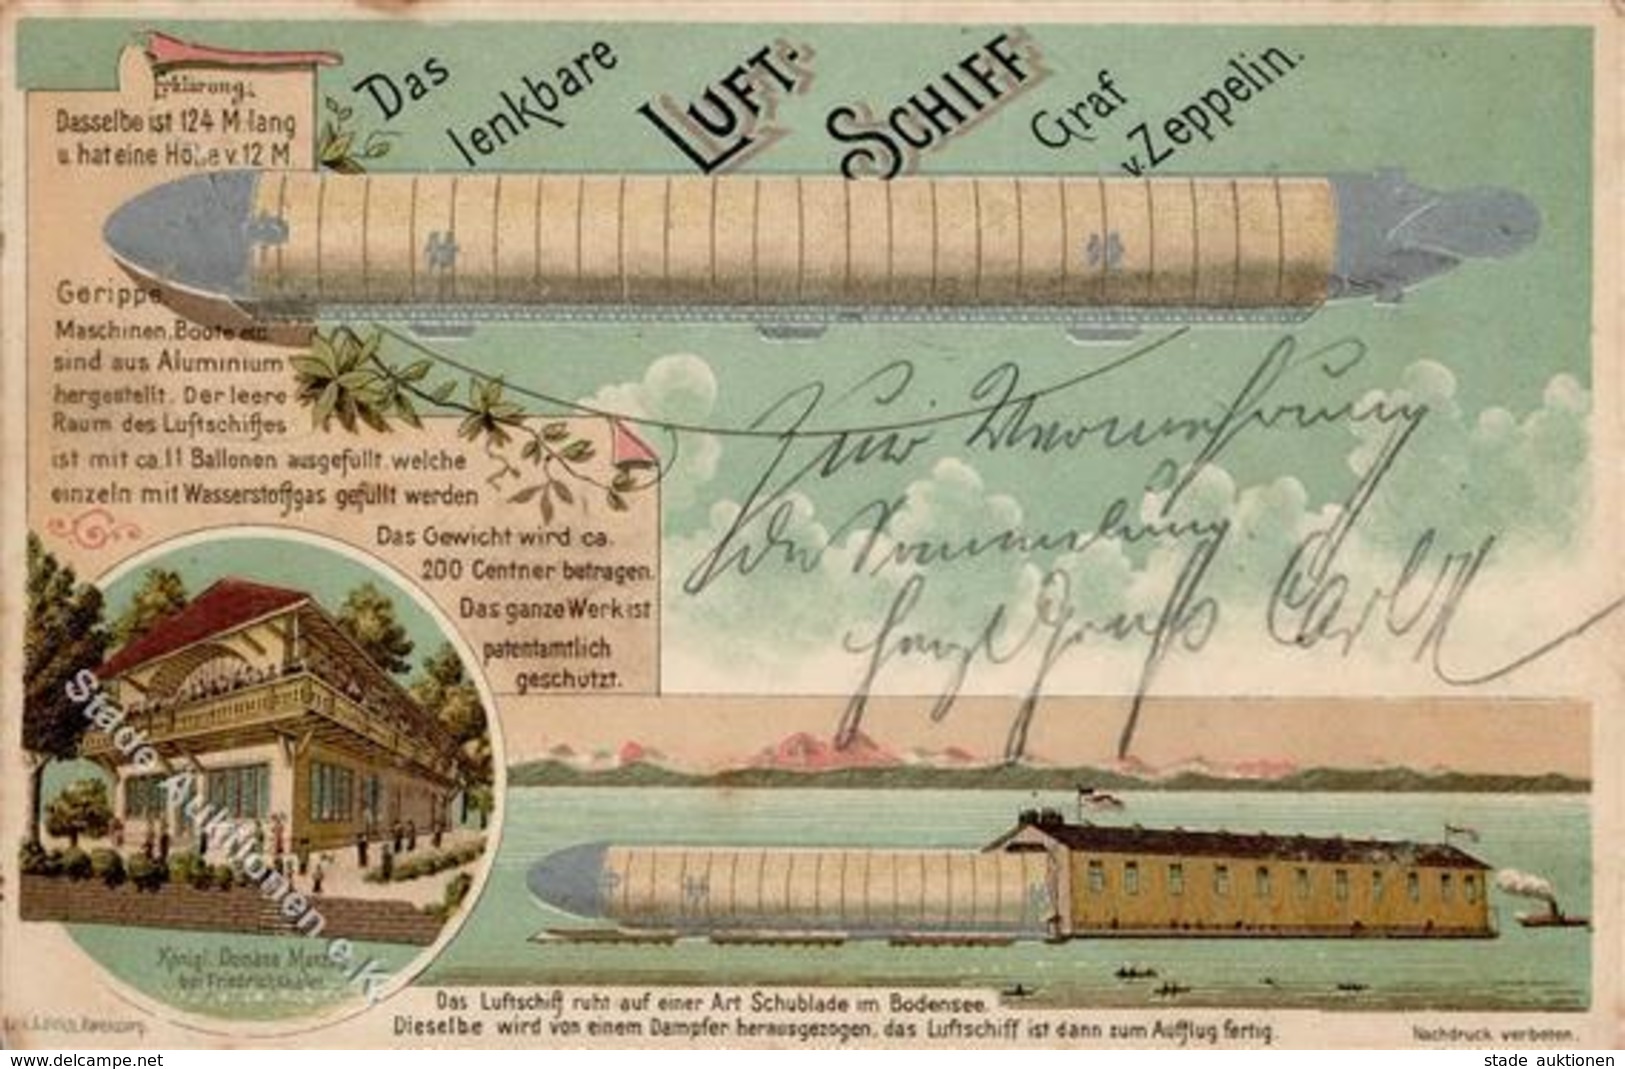 Das
lenkbare
LUFT-
SCHIFF
Graf
v. Zeppelin.
Erklärung:
Dasselbe ist 124 M. lang
u. hat eine Höhe v. 12 M
Gerippe,
Maschinen, Boote etc.
sind aus Aluminium
hergestellt. Der leere
Raum des Luftschiffes
ist mit ca. 11 Ballonen ausgefüllt, welche
einzeln mit Wasserstoffgas gefüllt werden
Das Gewicht wird ca.
200 Centner betragen.
Das ganze Werk ist
patentamtlich
geschützt.
Zur Vermehrung
der Sammlung.
Herzl Gruss Carl
Stade Auktionen
Königl. Domäne Manzell
bei Friedrichshafen
Das Luftschiff ruht auf einer Art Schublade im Bodensee.
Dieselbe wird von einem Dampfer herausgezogen, das Luftschiff ist dann zum Aufflug fertig.
Nachdruck verboten.
www.delcampe.net
stade auktionen